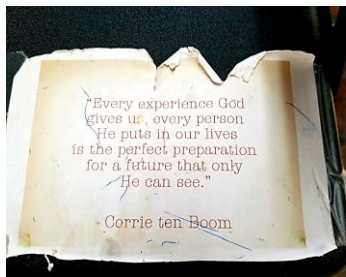 "Every experience God
gives us, every person
He puts in our lives
is the perfect preparation
for a future that only
He can see."
- Corrie ten Boom